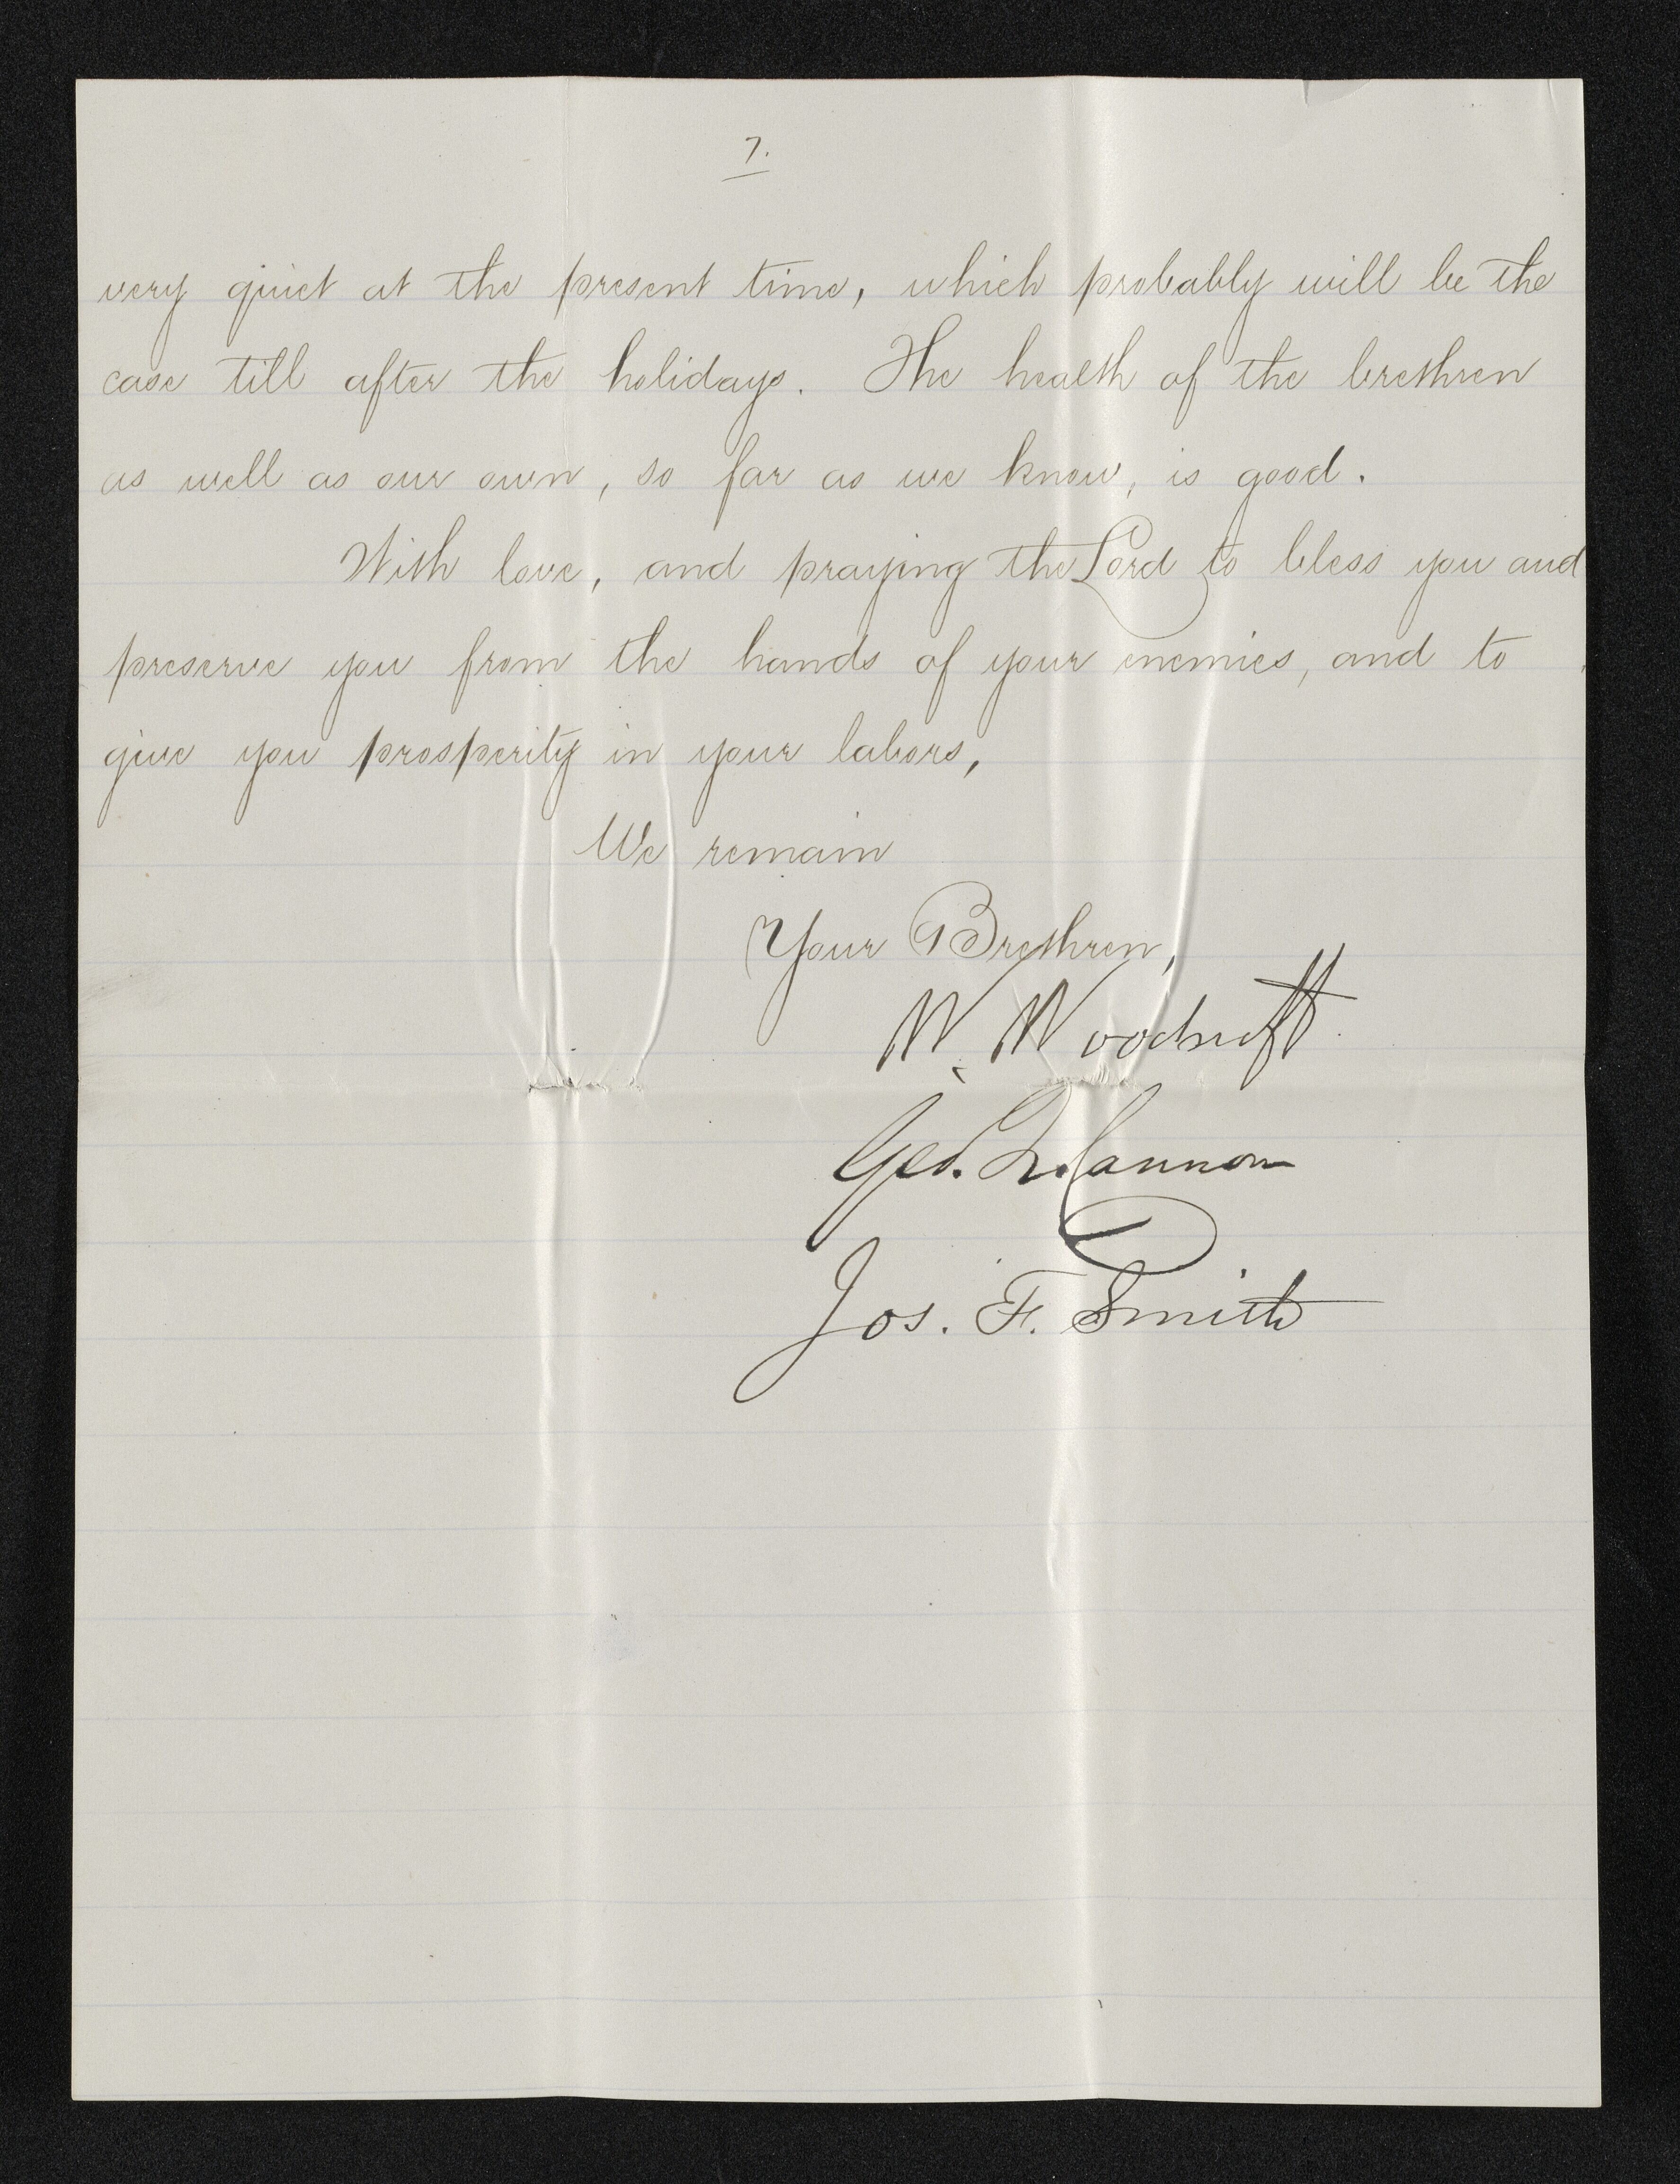 7.
very quiet at the present time, which probably will be the
case till after the holidays. The health of the brethren
as well as our own, so far as we know, is good.
With love, and praying the Lord to bless you and
preserve you from the hands of your enemies, and to
give you prosperity in your labors,
We remain
Your Brethren,
W. Woodruff.
Geo. Q. Cannon
Jos. F. Smith